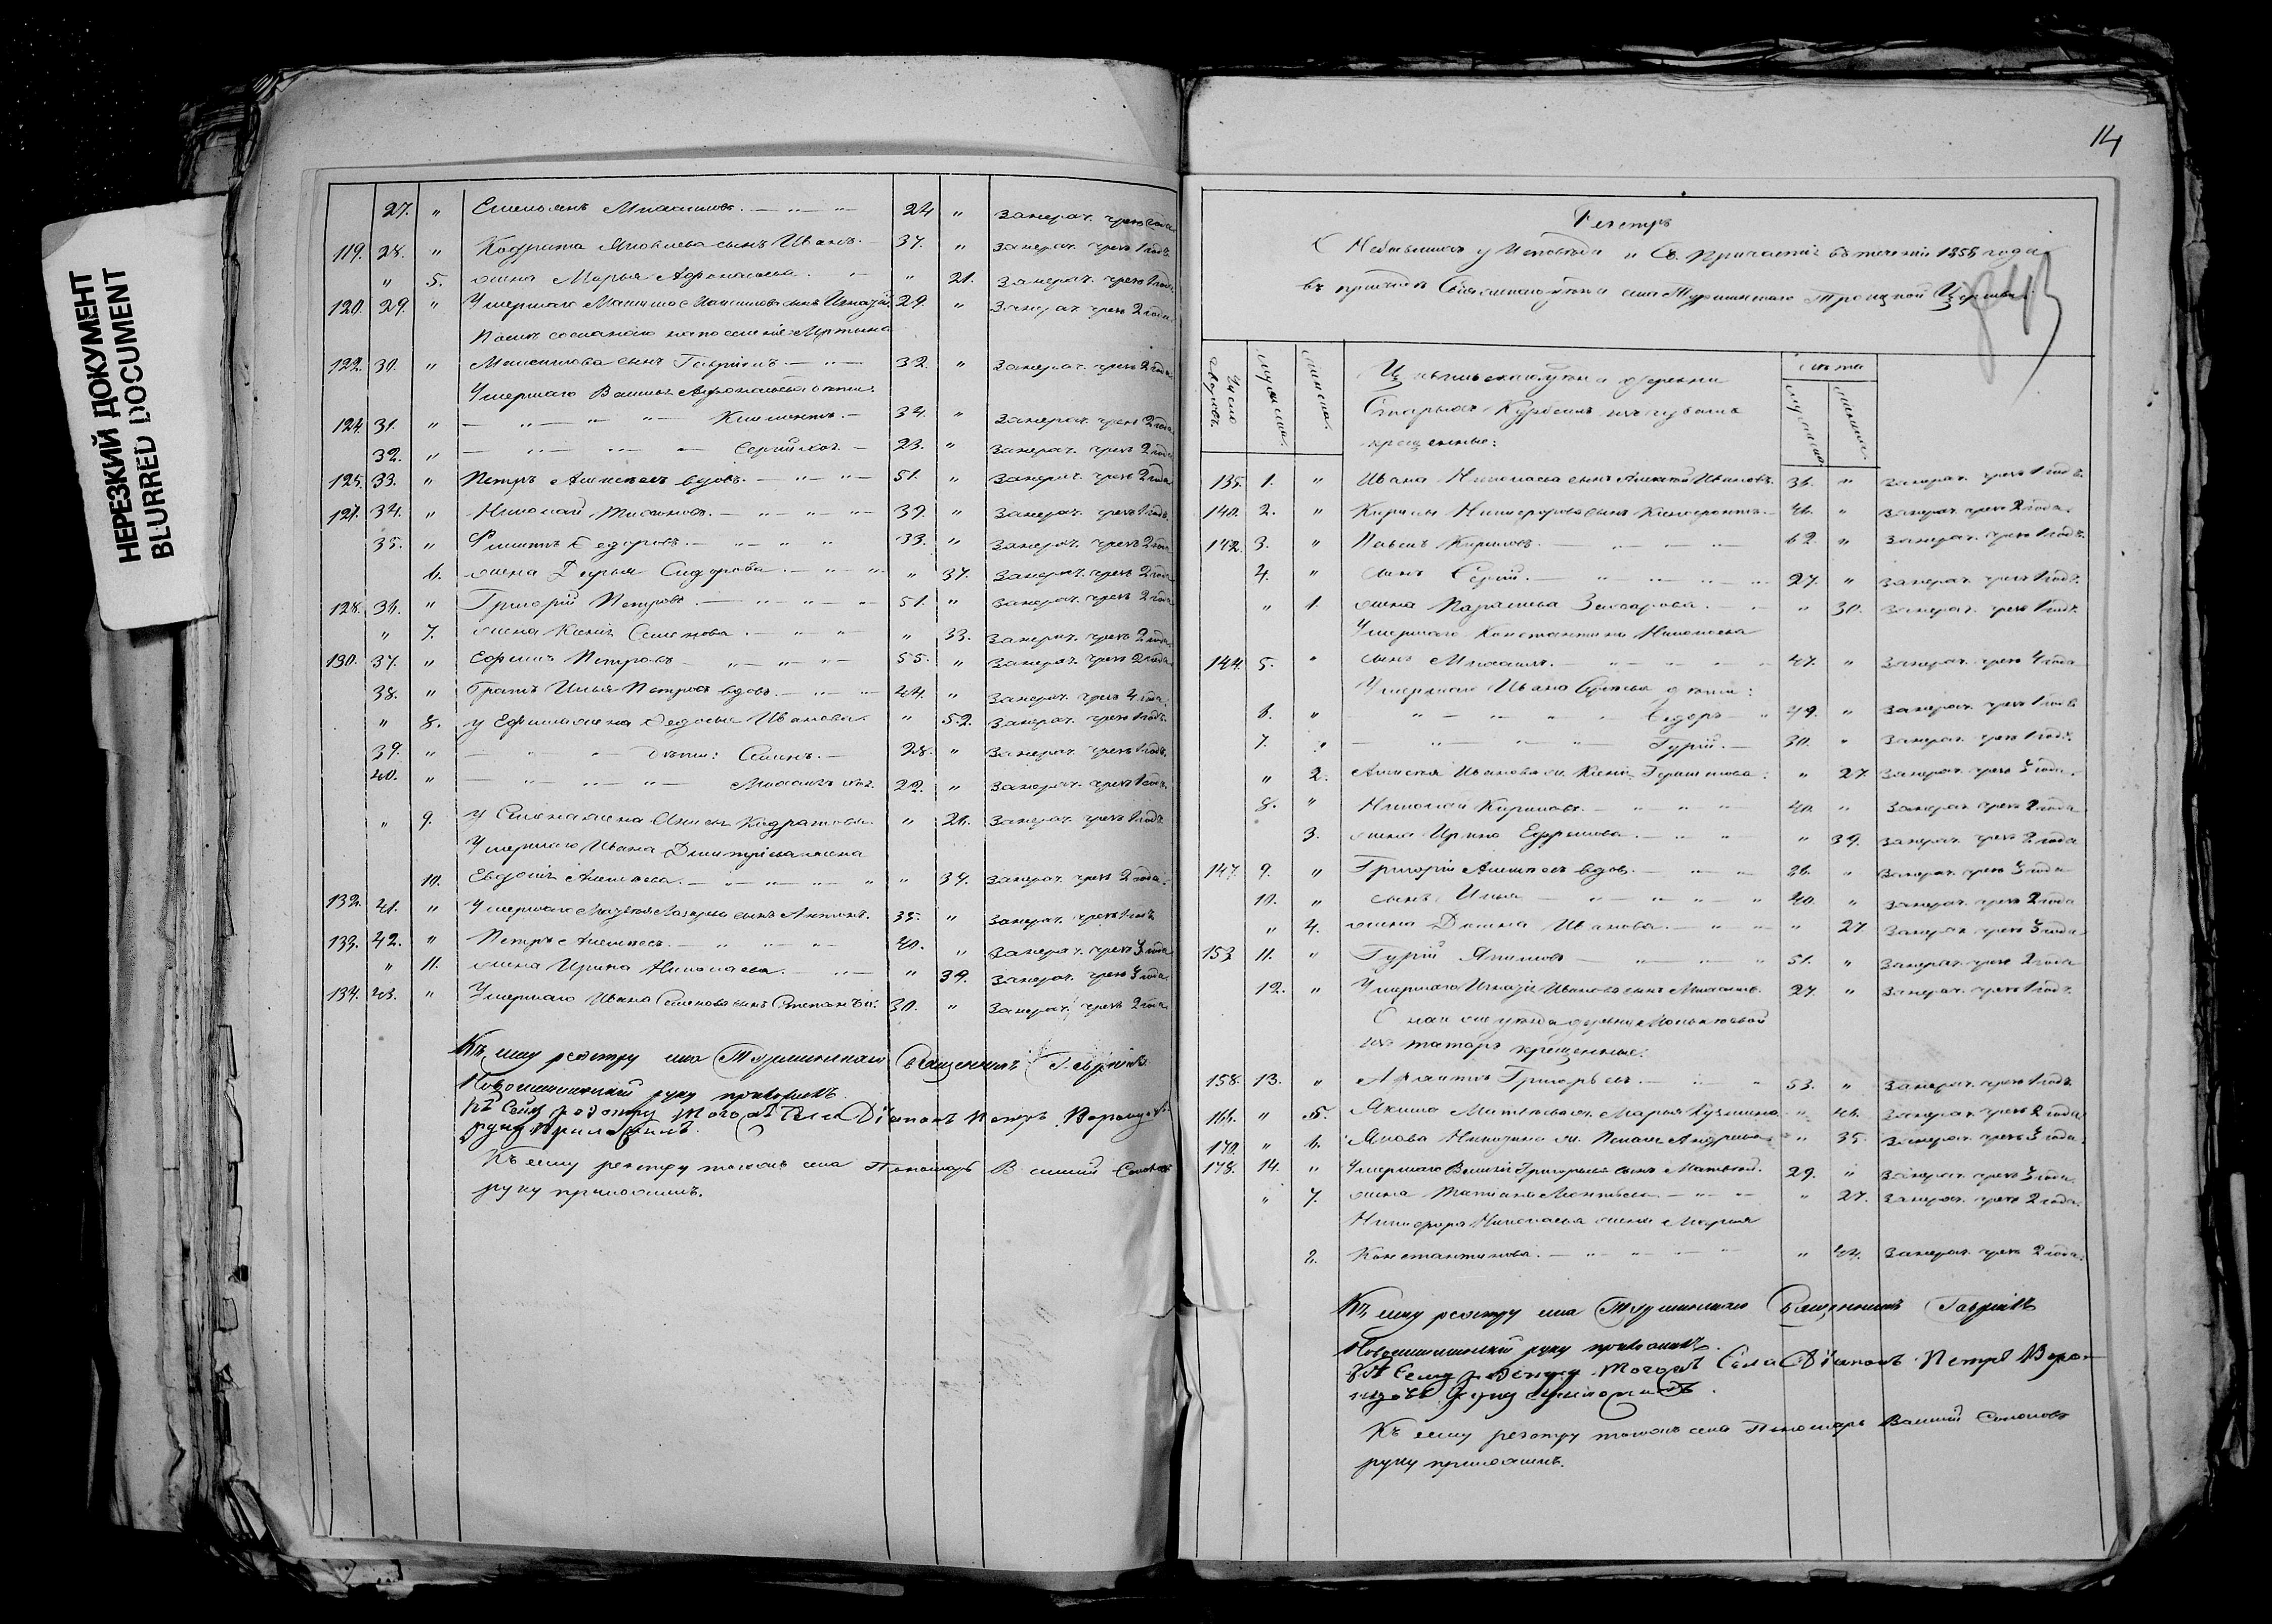 НЕРЕЗКИЙ ДОКУМЕНТ
BLURRED DOCUMENT
27. " Емельянъ Михаиловъ. 24 " Занерач. чрезъ
119. 28. " Кодрата Яковлева сынъ Иванъ. 37. " Занерач. чрезъ 1 годъ.
" 5. жена Марья Афонасьева. " 21. Занерач. чрезъ 1 годъ.
120. 29. " Умершаго сынъ Игнатій 29. " Занерач. чрезъ 2 года.
сосланаго на поселеніе Мартына
122. 30. " сынъ Гавріилъ. 32. " Занерач. чрезъ 2 года.
Умершаго дѣти:
124. 31. " Климентъ. 34. " Занерач. чрезъ 2 года.
32. " Сергій хол. 23. " Занерач. чрезъ 2 года
125. 33. " Петръ Алексѣевъ вдовъ. 51. " Занерач. чрезъ 2 года
127. 34. " Николай 39. " Занерач. чрезъ 1 годъ.
35. " Филиппъ Федоровъ. 33. " Занерач. чрезъ 2 года
6. жена Дарья Сидорова. " 37. Занерач. чрезъ 2 года
128. 36. " Григорій Петровъ. 51. " Занерач. чрезъ 2 года
" 7. жена Ксенія Семенова. " 33. Занерач. чрезъ 2 года.
130. 37. " Ефимъ Петровъ 55. " Занерач. чрезъ 2 года.
38. " братъ Илья Петровъ вдовъ. 44. " Занерач. чрезъ 4 года.
" 8. у Ефима жена Федосья Иванова. " 52. Занерач. чрезъ 1 годъ.
39. " дѣти: Семенъ. 28. " Занерач. чрезъ 1 годъ.
40. " Михаилъ хол. 22. " Занерач. чрезъ 1 годъ.
" 9. у Семена жена Кодратова. " 26. Занерач. чрезъ 1 годъ.
Умершаго Ивана Дмитріева жена
10. Евдокія Алексѣева. " 34. Занерач. чрезъ 2 года.
132. 41. " Умершаго сынъ Антонъ. 35. " Занерач. чрезъ 1 годъ
133. 42. " Петръ Алексѣевъ. 40. " Занерач. чрезъ 3 года
" 11. жена Ирина Николаева. " 39. Занерач. чрезъ 3 года.
134. 43. " Умершаго Ивана Семенова сынъ Степанъ 30. " Занерач. чрезъ 2 года.
Къ сему реэстру села Турминскаго Священникъ Гавріилъ
руку приложилъ.
Къ Сему реэстру Тогожъ Села Діаконъ Петръ
руку Приложилъ.
Къ сему реэстру тогожъ села Пономарь Василій Соколовъ
руку приложилъ.
14
Реэстръ
О Небывшихъ у Исповѣди и Св. Причастія въ теченіи 1855 года
въ приходѣ Свіяжскаго уѣзда села Турминскаго Троицкой Церкви.
843
Число дворовъ. мужеска. женска. Цивильскаго уѣзда деревни лѣта
Старыхъ изъ чувашъ мужеска женска
крещенные:
135. 1. " Ивана Николаева сынъ Алексѣй Ивановъ. 36. " Занерач. чрезъ 1 годъ.
140. 2. " Кирилы Никифорова сынъ 46. " Занерач. чрезъ 2 года.
142. 3. " Павелъ Кириловъ. 62. " Занерач. чрезъ 1 годъ.
4. " сынъ Сергій. 27. " Занерач. чрезъ 1 годъ.
" 1. жена Параскева Захарова. " 30. Занерач. чрезъ 1 годъ.
Умершаго Константина Николаева
144. 5. " сынъ Михаилъ. 47. " Занерач. чрезъ 4 года
Умершаго Ивана дѣти:
6. " Сидоръ 49. " Занерач. чрезъ 1 годъ
7. " Гурій. 30. " Занерач. чрезъ 1 годъ.
" 2. Алексѣя Иванова ж. Ксенія " 27. Занерач. чрезъ 3 года.
8. " Николай Кириловъ. 40. " Занерач. чрезъ 2 года
3. жена Ирина Ефремова. " 39. Занерач. чрезъ 2 года
147. 9. " Григорій Алексѣевъ вдовъ. " Занерач. чрезъ 3 года
10. " сынъ Илья 40. " Занерач. чрезъ 2 года
" 4. жена Домна Иванова. " 27. Занерач. чрезъ 3 года
153. 11. " Гурій Якимовъ 51. " Занерач. чрезъ 2 года
12. " Умершаго Игнатія Иванова сынъ Михаилъ. 27. " Занерач. чрезъ 1 годъ.
уѣзда деревни
изъ татаръ крещенные.
158. 13. " Григорьевъ. 53. " Занерач. чрезъ 1 годъ.
166. " 5. Якима Матвѣева ж. Марья Кузмина " 46. Занерач. чрезъ 2 года
170. " 6. Якова ж. Андреева. " 35. Занерач. чрезъ 3 года.
178. 14. " Умершаго Василія Григорьева сынъ Матвѣй. 29. " Занерач. чрезъ 3 года.
" 7. жена Татіана " 27. Занерач. чрезъ 2 года.
Никифора Николаева жена Марія
8. Константинова. " 44. Занерач. чрезъ 2 года.
Къ сему реэстру села Турминскаго Священникъ Гавріилъ
руку приложилъ.
Къ Сему реэстру Тогожъ Села Діаконъ Петръ
руку приложилъ.
Къ сему реэстру тогожъ села Пономарь Василій Соколовъ
руку приложилъ.